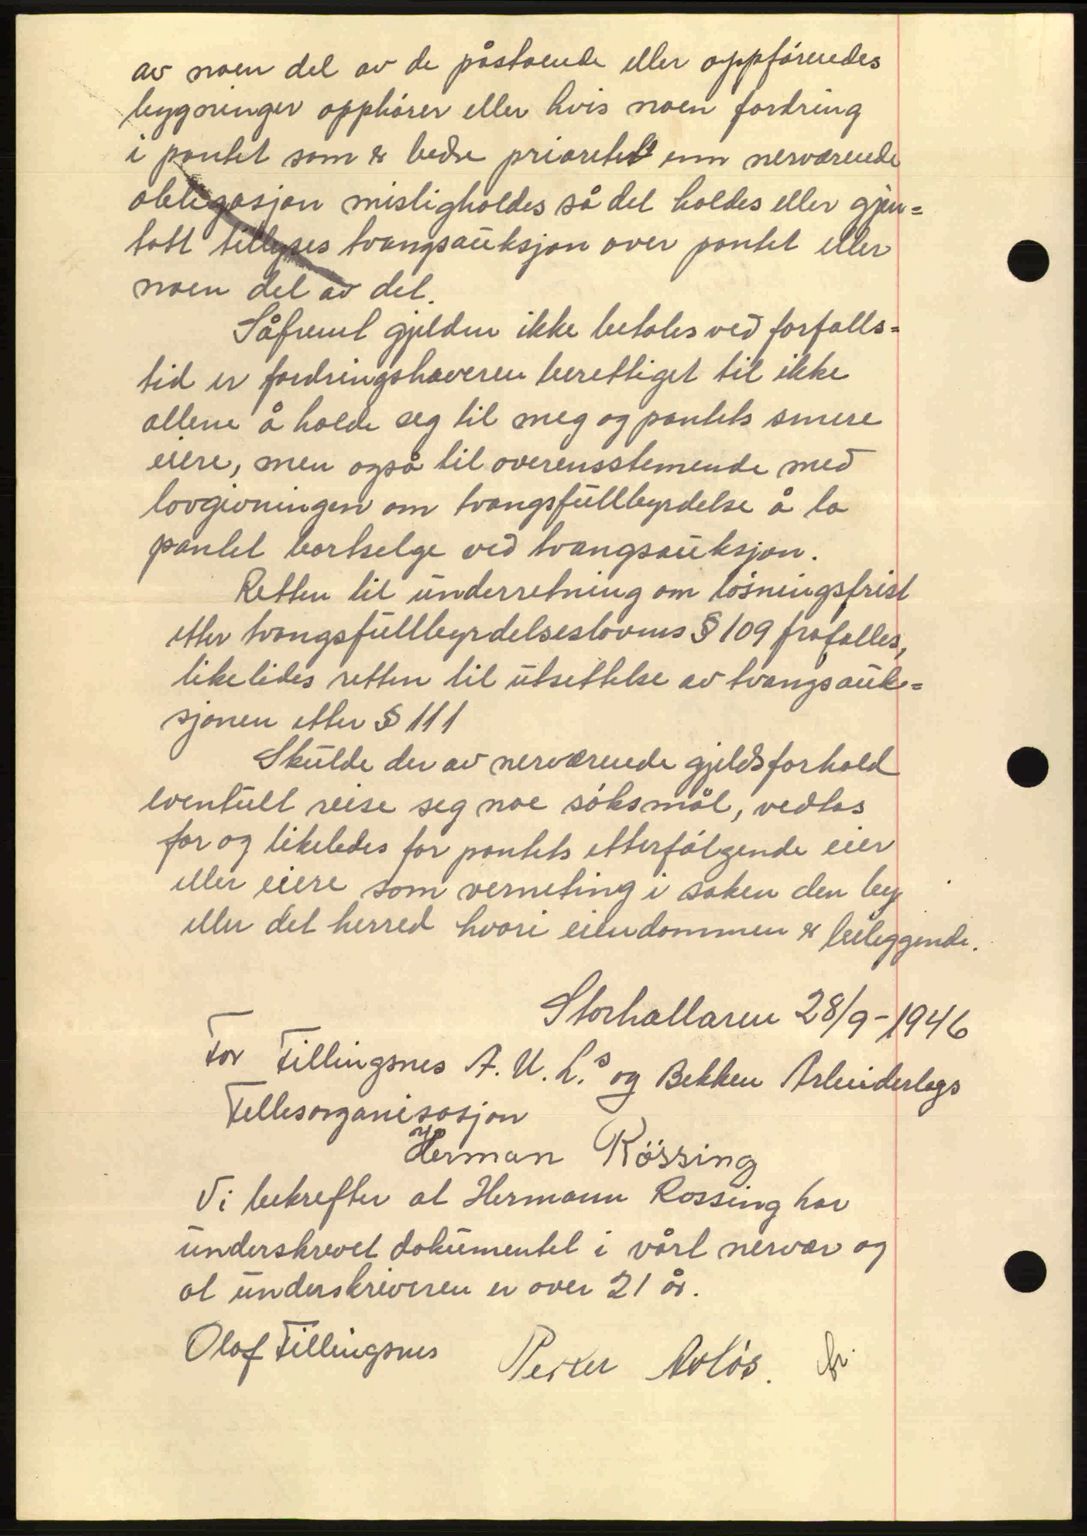 av noen del av de påstående eller oppförendes
bygninger opphører eller hvis noen fordring
i pantet som er bedre prioritet enn nerværende
obligasjon misligholdes så det holdes eller gjen=
tatt tillyses tvangsauksjon over pantet eller
noen del av det.
Såfremt gjelden ikke betales ved forfalls=
tid er fordringshaveren berettiget til ikke
allene å holde seg til meg og pantets senere
eiere, men også til overensstemende med
lovgivningen om tvangsfullbyrdelse å la
pantet bortselge ved tvangsauksjon.
Retten til underretning om løsningsfrist
etter tvangsfullbyrdelseslovens § 109 frafalles,
likeledes retten til utsettelse av tvangsauk=
sjonen etter § 111
Skulde der av nerværende gjeldsforhold
eventuelt reise seg noe søksmål, vedtas
for og likeledes for pantets etterfølgende eier
eller eiere som verneting i saken den by
eller det herred hvori eiendommen er beliggende.
Storhallaren 28/9-1946
For Fillingsnes A.U.L.s og Bekken Arbeiderlags
Fellesorganisasjon
Herman Røssing
Vi bekrefter at Hermann Rossing har
underskrevet dokumentet i vårt nervær og
at underskriveren er over 21 år.
Olaf Fillingsnes Petter Avløs.